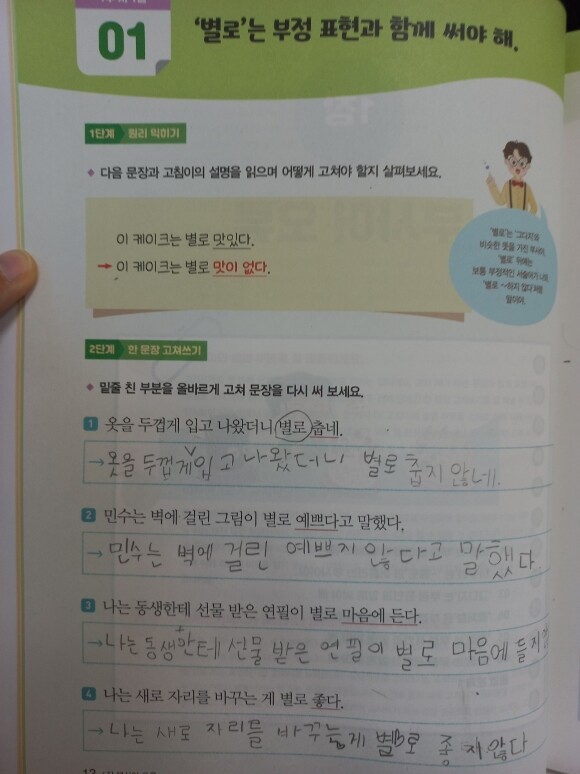 01
'별로'는 부정 표현과 함께 써야 해.
1단계 원리 익히기
다음 문장과 고침이의 설명을 읽으며 어떻게 고쳐야 할지 살펴보세요.
이 케이크는 별로 맛있다.
→ 이 케이크는 별로 맛이 없다.
'별로'는 '그다지'와
비슷한 뜻을 가진 부사야.
'별로' 뒤에는
보통 부정적인 서술어가 나와
'별로 ~하지 않다'처럼
말이야.
2단계 한 문장 고쳐쓰기
밑줄 친 부분을 올바르게 고쳐 문장을 다시 써 보세요.
1 옷을 두껍게 입고 나왔더니 별로 춥네.
→ 옷을 두껍게 입고 나왔더니 별로 춥지 않네.
2 민수는 벽에 걸린 그림이 별로 예쁘다고 말했다.
→ 민수는 벽에 걸린 예쁘지 않다고 말했다
3 나는 동생한테 선물 받은 연필이 별로 마음에 든다.
→ 나는 동생한테 선물 받은 연필이 별로 마음에 들지
4 나는 새로 자리를 바꾸는 게 별로 좋다.
→ 나는 새로 자리를 바꾸는게 별로 좋지않다